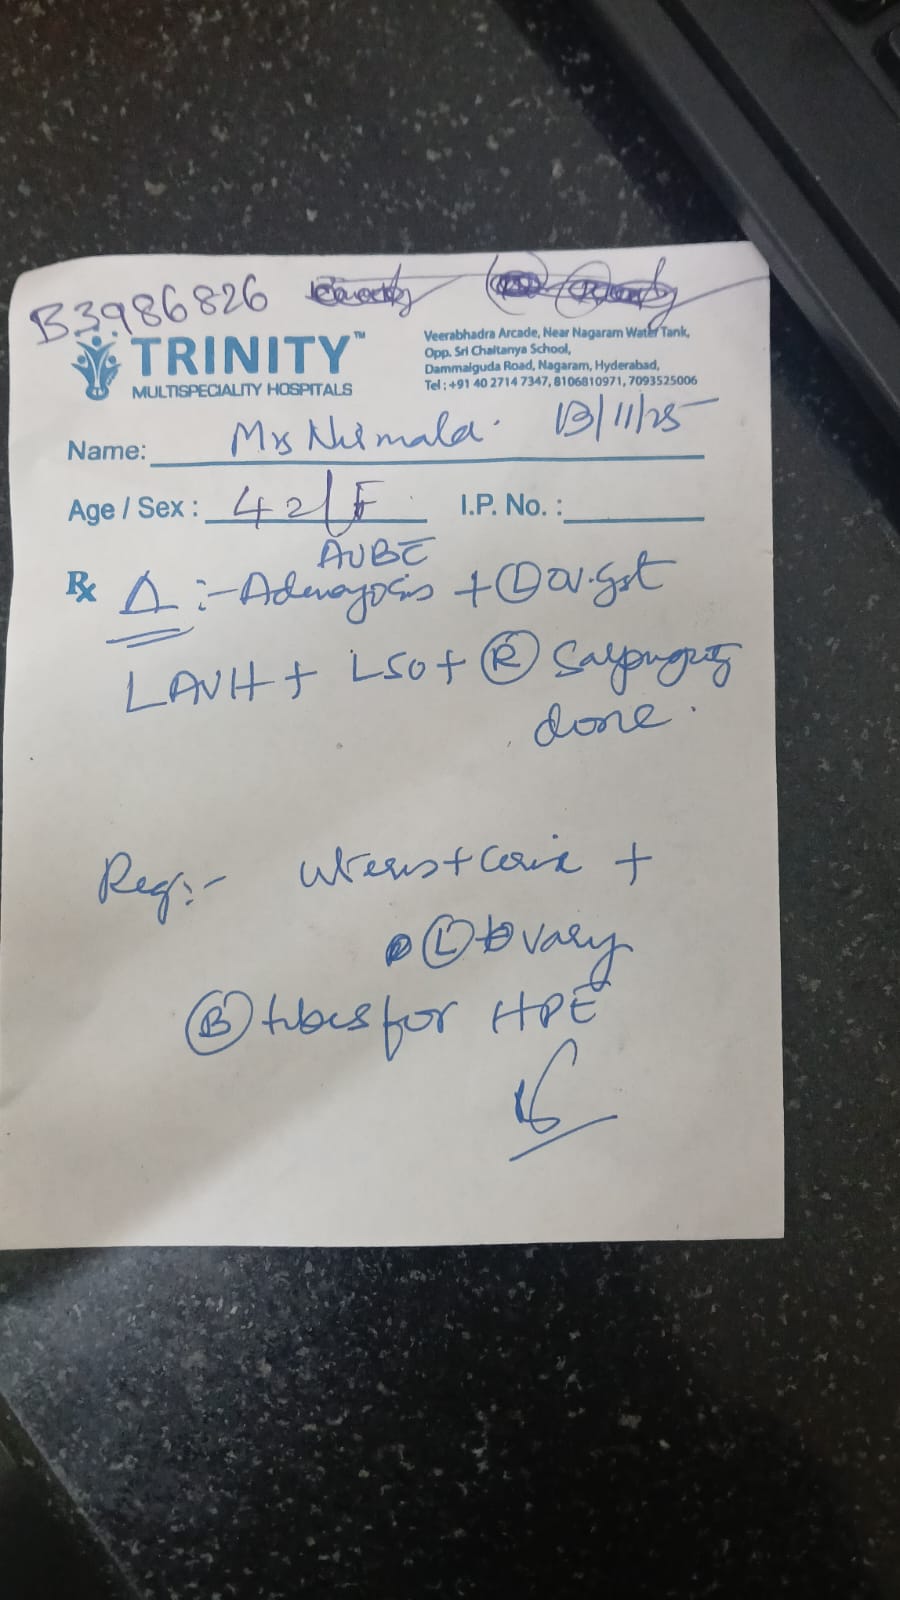 B3986826
TRINITY™
MULTISPECIALITY HOSPITALS
Veerabhadra Arcade, Near Nagaram Water Tank,
Opp. Sri Chaitanya School,
Dammaiguda Road, Nagaram, Hyderabad,
Tel : +91 40 2714 7347, 8106810971, 7093525006
Name: Mrs Nirmala. 13/11/25
Age / Sex : 42/F I.P. No. :
AUBE
Rx Δ :- Adenomyosis + Ⓛ ov. cyst
LAVH + LSO + Ⓡ Salpingectomy
done.
Req:- Uterus + Cervix +
Ⓛ Ovary
Ⓑ tubes for HPE